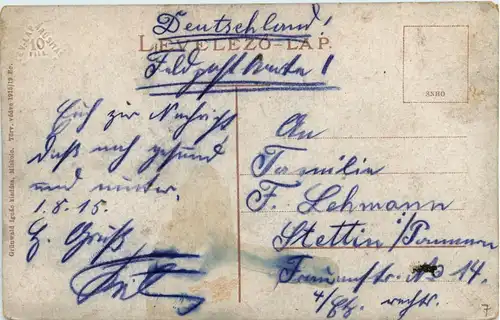 Deutschland!
LEVELEZŐ-LAP.
Feldpostkarte!
10
FILL.
Euch zur Nachricht
daß noch gesund
und munter.
1.8.15.
H. Gruß
An
Familie
F. Lehmann
Stettin/Pommern
Frauenstr. No 14.
4/Etg. rechts.
Grünwald Ignác kiadása, Miskolc. Törv. védve 1915/19 Eo.
7